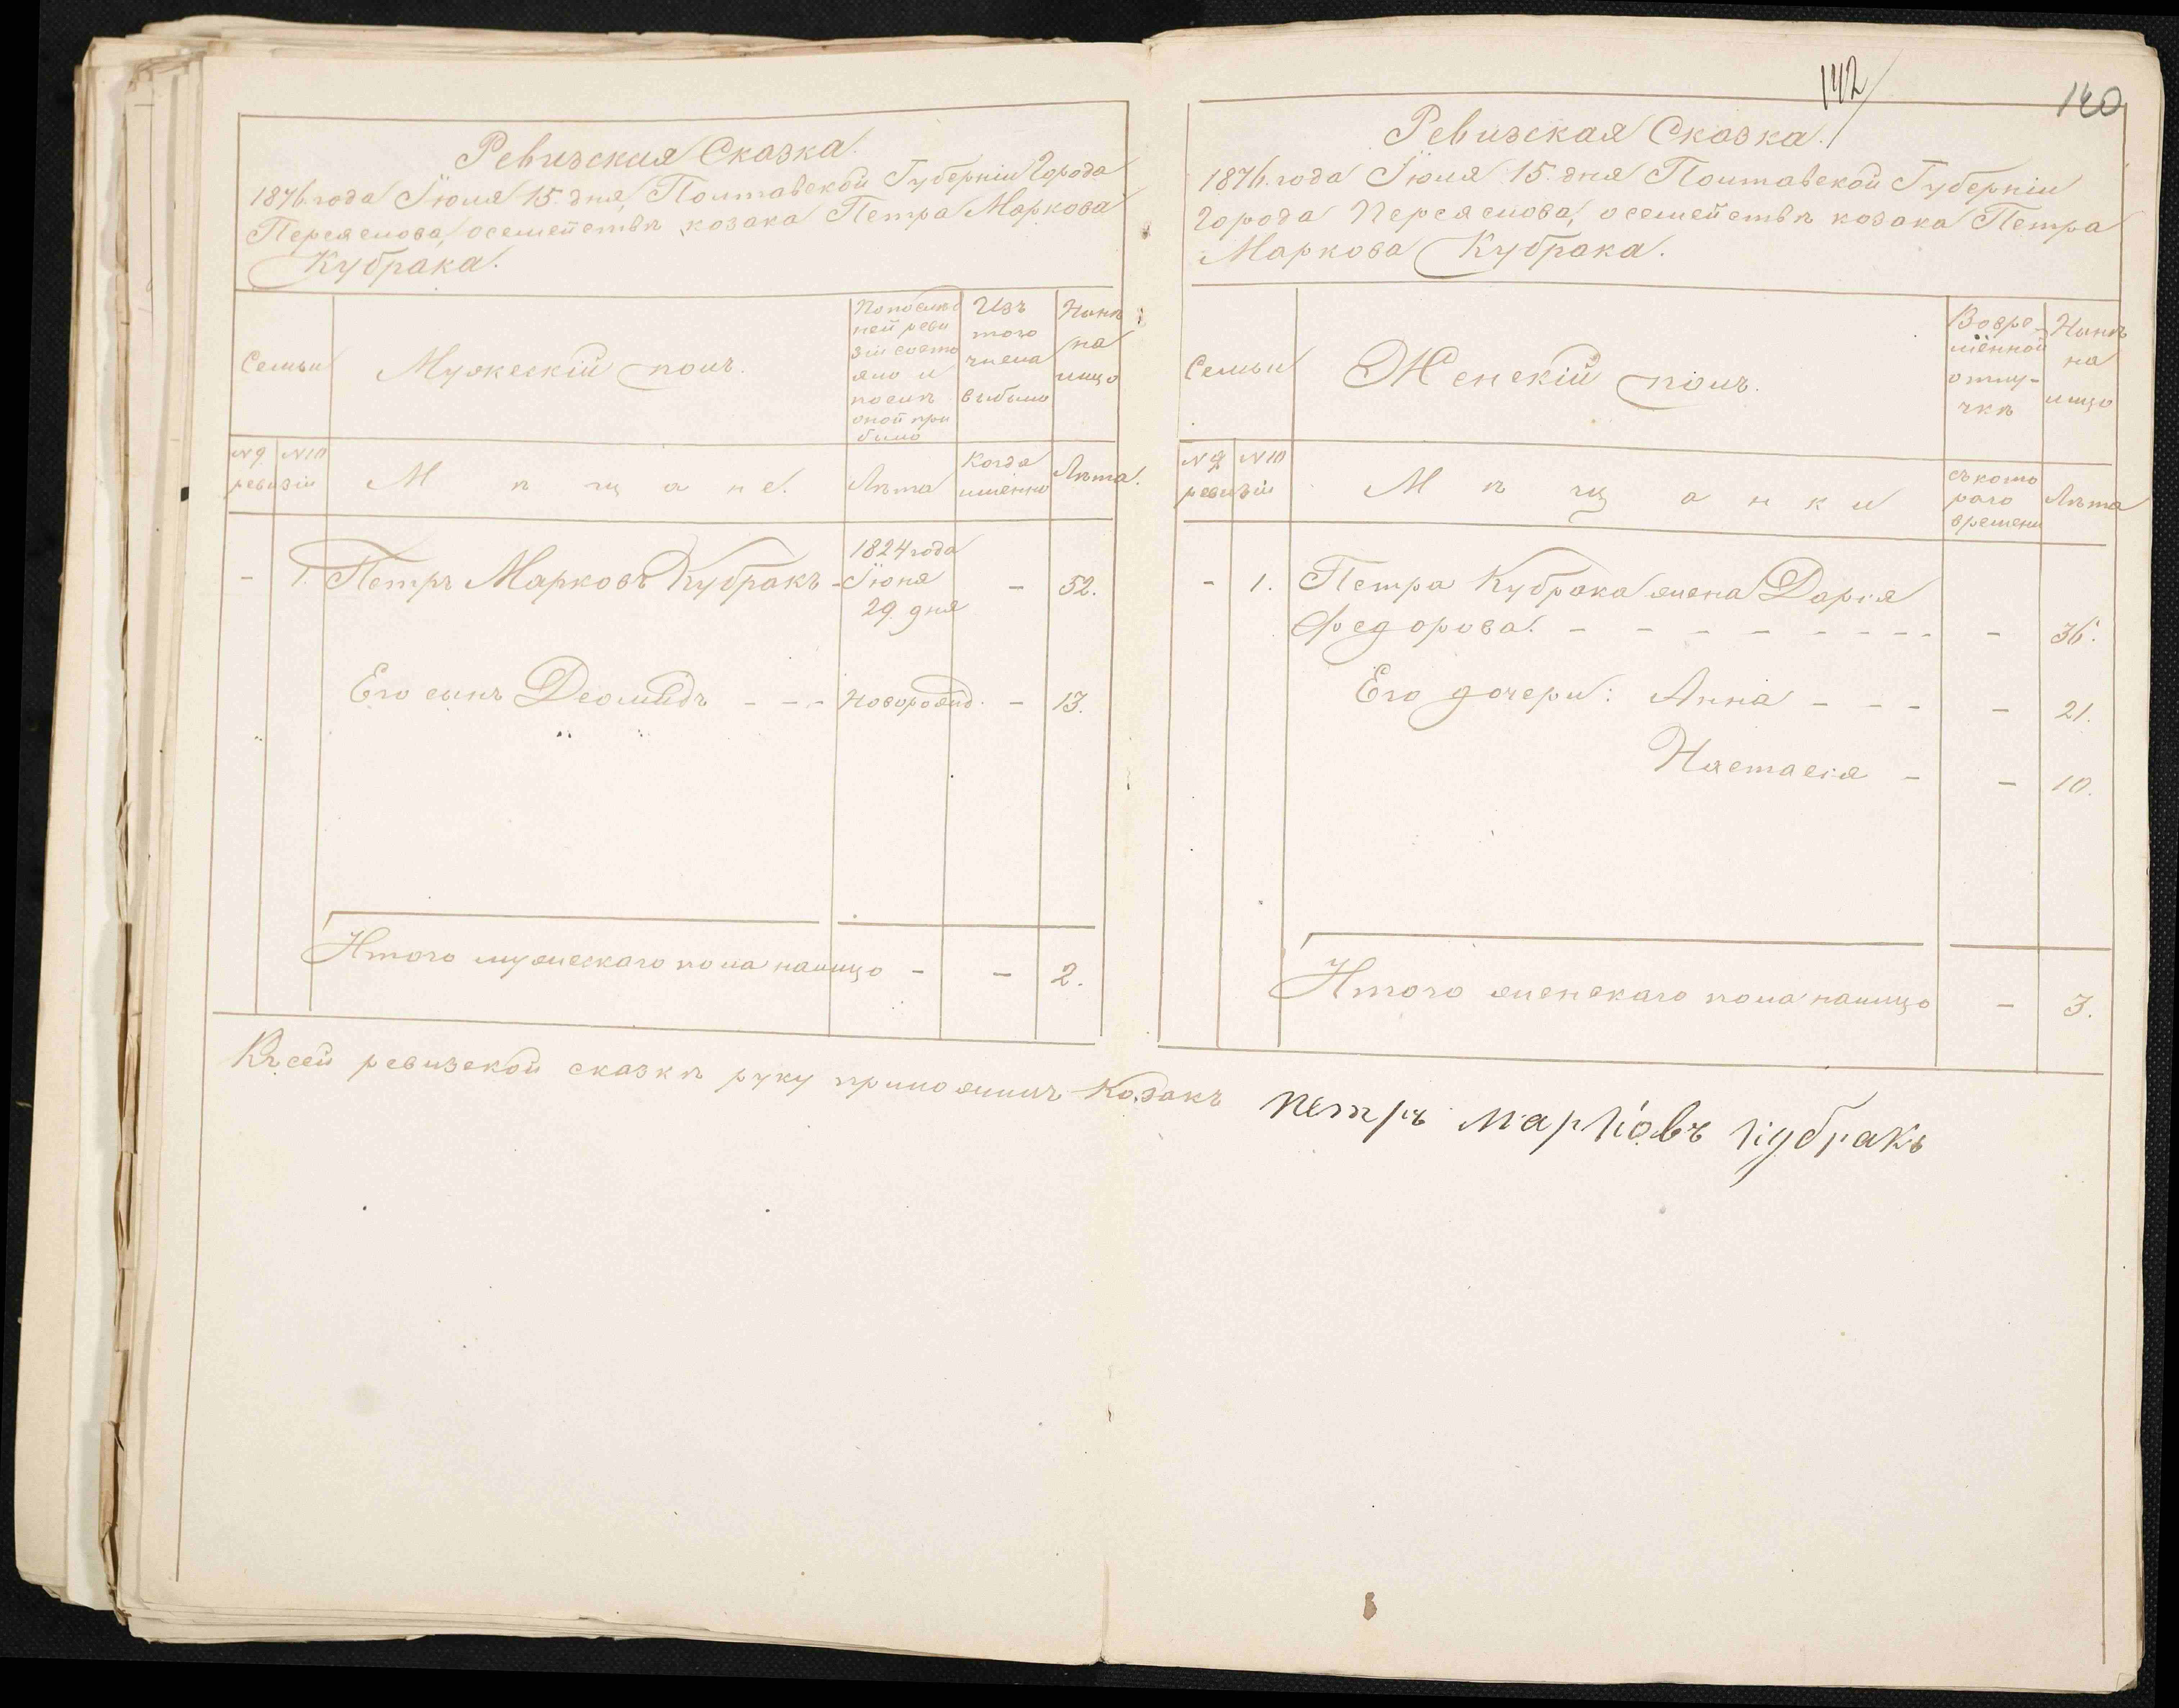 Ревизская Сказка.
1876 года Іюля 15. дня, Полтавской Губерніи Города
Переяслова, о семействѣ козака Петра Маркова
Кубрака.
Семьи
Мужескій полъ.
По послѣд
ней реви
зіи состо
яло и
послѣ
оной при
было
Изъ
того
числа
выбыло
Нынѣ
на
лицо
№ 9 № 10
ревизіи
М ѣ щ а н е.
Лѣта
Когда
именно
Лѣта.
- 1. Петръ Марковъ Кубракъ -
1824 года
Іюня
29 дня
- 52.
Его сынъ Деомидъ - - - новорожд. - 13.
Итого мужескаго пола налицо - - 2.
Къ сей ревизской сказкѣ руку приложилъ Козакъ
142
140
Ревизская Сказка.
1876. года Іюля 15. дня Полтавской Губерніи
Города Переяслова, о семействѣ козака Петра
Маркова Кубрака.
Семьи
Женскій полъ.
Во вре-
менной
отлу-
чкѣ
Нынѣ
на
лицо
№ 9 № 10
ревизіи
М ѣ щ а н к и
съ кото
раго
времени
Лѣта
- 1. Петра Кубрака жена Дарія
Федорова. - - - - - - - - - 36.
Его дочери: Анна - - - - 21.
Настасія - - 10.
Итого женскаго пола налицо - 3.
петръ марковъ кубракъ